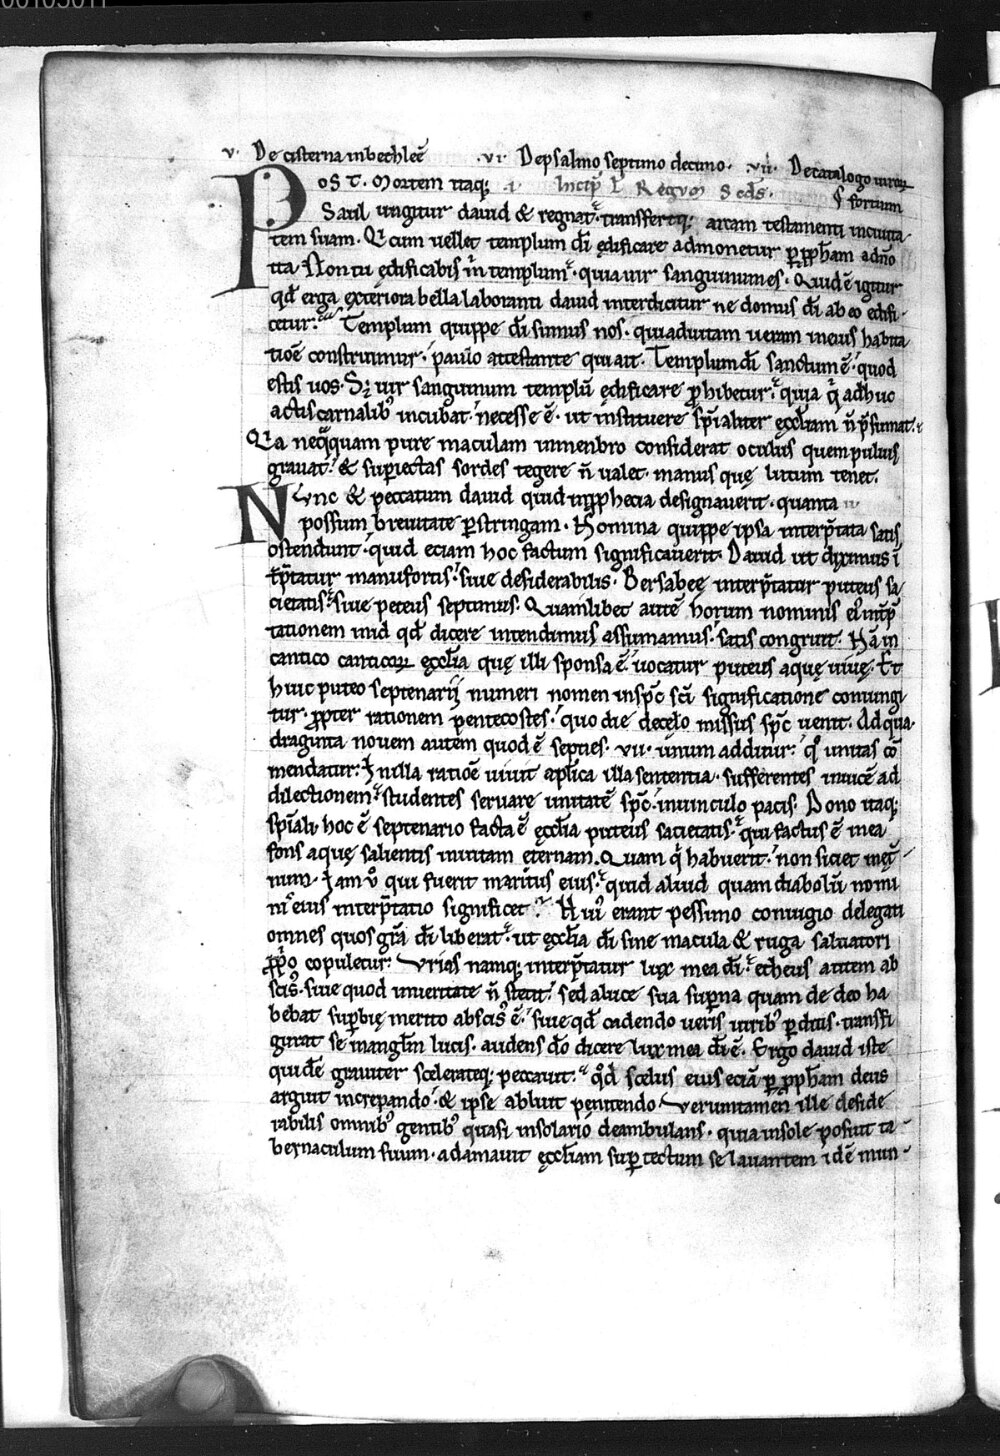 .v. De cisterna in bethleē .vi. De psalmo septimo decimo. .vii. De catalogo uiroꝝ
POST. Mortem itaq; .i. Incip̄ L Regum Scds. § fortium
Saul ungitur dauid & regnat. transfertq; arcam testamenti in ciuita
tem suam. Et cum uellet templum di̅ ędificare admonetur ꝑ ꝓph̄am ad n̄o
tia Non tu ędificabis m̄ templum. quia uir sanguinum es. Quid ē igitur
qd̄ erga exteriora bella laboranti dauid interdicitur ne domus di̅ ab eo edifi
cetur. Templum quippe di̅ sumus nos. qui ad uitam ueram in eius habita
tioē construimur. paulo attestante qui ait. Templum di̅ sanctum ē quod
estis uos. Sꝫ uir sanguinum templū ędificare ꝓhibetur. quia q̇ adhuc
actis carnalib; incubat. necesse ē. ut instituere sp̄ialiter ęccl̄iam n̄ p̄sumat.
Ea neq̇quam pure maculam in menbro considerat oculus quem puluis
grauat. & suꝑiectas sordes tegere n̄ ualet. manus quę lutum tenet.
NUnc & peccatum dauid quid in ꝓphecia designauerit. quanta
possum breuitate ꝑstringam. Nomina quippe ipsa interp̄tata satis
ostendunt. quid eciam hoc factum significauerit. Dauid ut diximus ī
t̄p̄tatur manu fortis. siue desiderabilis. Bersabeę interp̄tatur puteus sa
cietatis. siue puteus septimus. Quamlibet autē horum nominis ei; int̄p̄
tationem in id qd̄ dicere intendimus assumamus. satis congruit. Nā in
cantico canticoꝝ ęccl̄ia quę illi sponsa ē. uocatur puteus aquę uiuę. Et
huic puteo septenarij numeri nomen in sp̄c sc̄i significatione coniungi
tur. ꝓpter rationem pentecostes. quo die de cęlo missus sp̄c uenit. Ad qua
draginta nouem autem quod ē septies. vii. unum additur. q̊ unitas cō
mendatur. In illa ratioē uiuit ap̄lica illa sententia. sufferentes inuicē ad
dilectionem. studentes seruare unitatē sp̄c. in uinculo pacis. Dono itaq;
sp̄iali. hoc ē septenario facta ē ęccl̄ia puteus sacietatis. qui factus ē in ea
fons aquę salientis in uitam eternam. Quam q̇ habuerit. non siciet in ęt
num. Iam ů qui fuerit maritus eius. quid aliud quam diabolū nomi
nis eius interp̄tatio significet. Huic erant pessimo coniugio delegati
omnes quos gr̄a di̅ liberat. ut ęccl̄ia di̅ sine macula & ruga saluatori
ꝓp̊o copuletur. Urias namq; interp̄tatur lux mea di̅. etheus autem ab
scis;. siue quod in ueritate n̄ stetit. sed a luce sua suꝑna quam de deo ha
bebat suꝑbię merito abscis; ē. siue qd̄ cadendo ueris uirib; ꝑditis. transfi
gurat se in angl̄m lucis. audens dō dicere lux mea di̅ ē. Ergo dauid iste
quidē grauiter scelerateq; peccauit. qd̄ scelus eius eciā ꝑ ꝓph̄am deus
arguit increpando. & ipse abluit penitendo. Veruntamen̄ ille deside
rabilis omnib; gentib; quasi in solario deambulans. quia in sole posuit ta
bernaculum suum. adamauit ęccl̄iam suꝑ tectum se lauantem idē mun